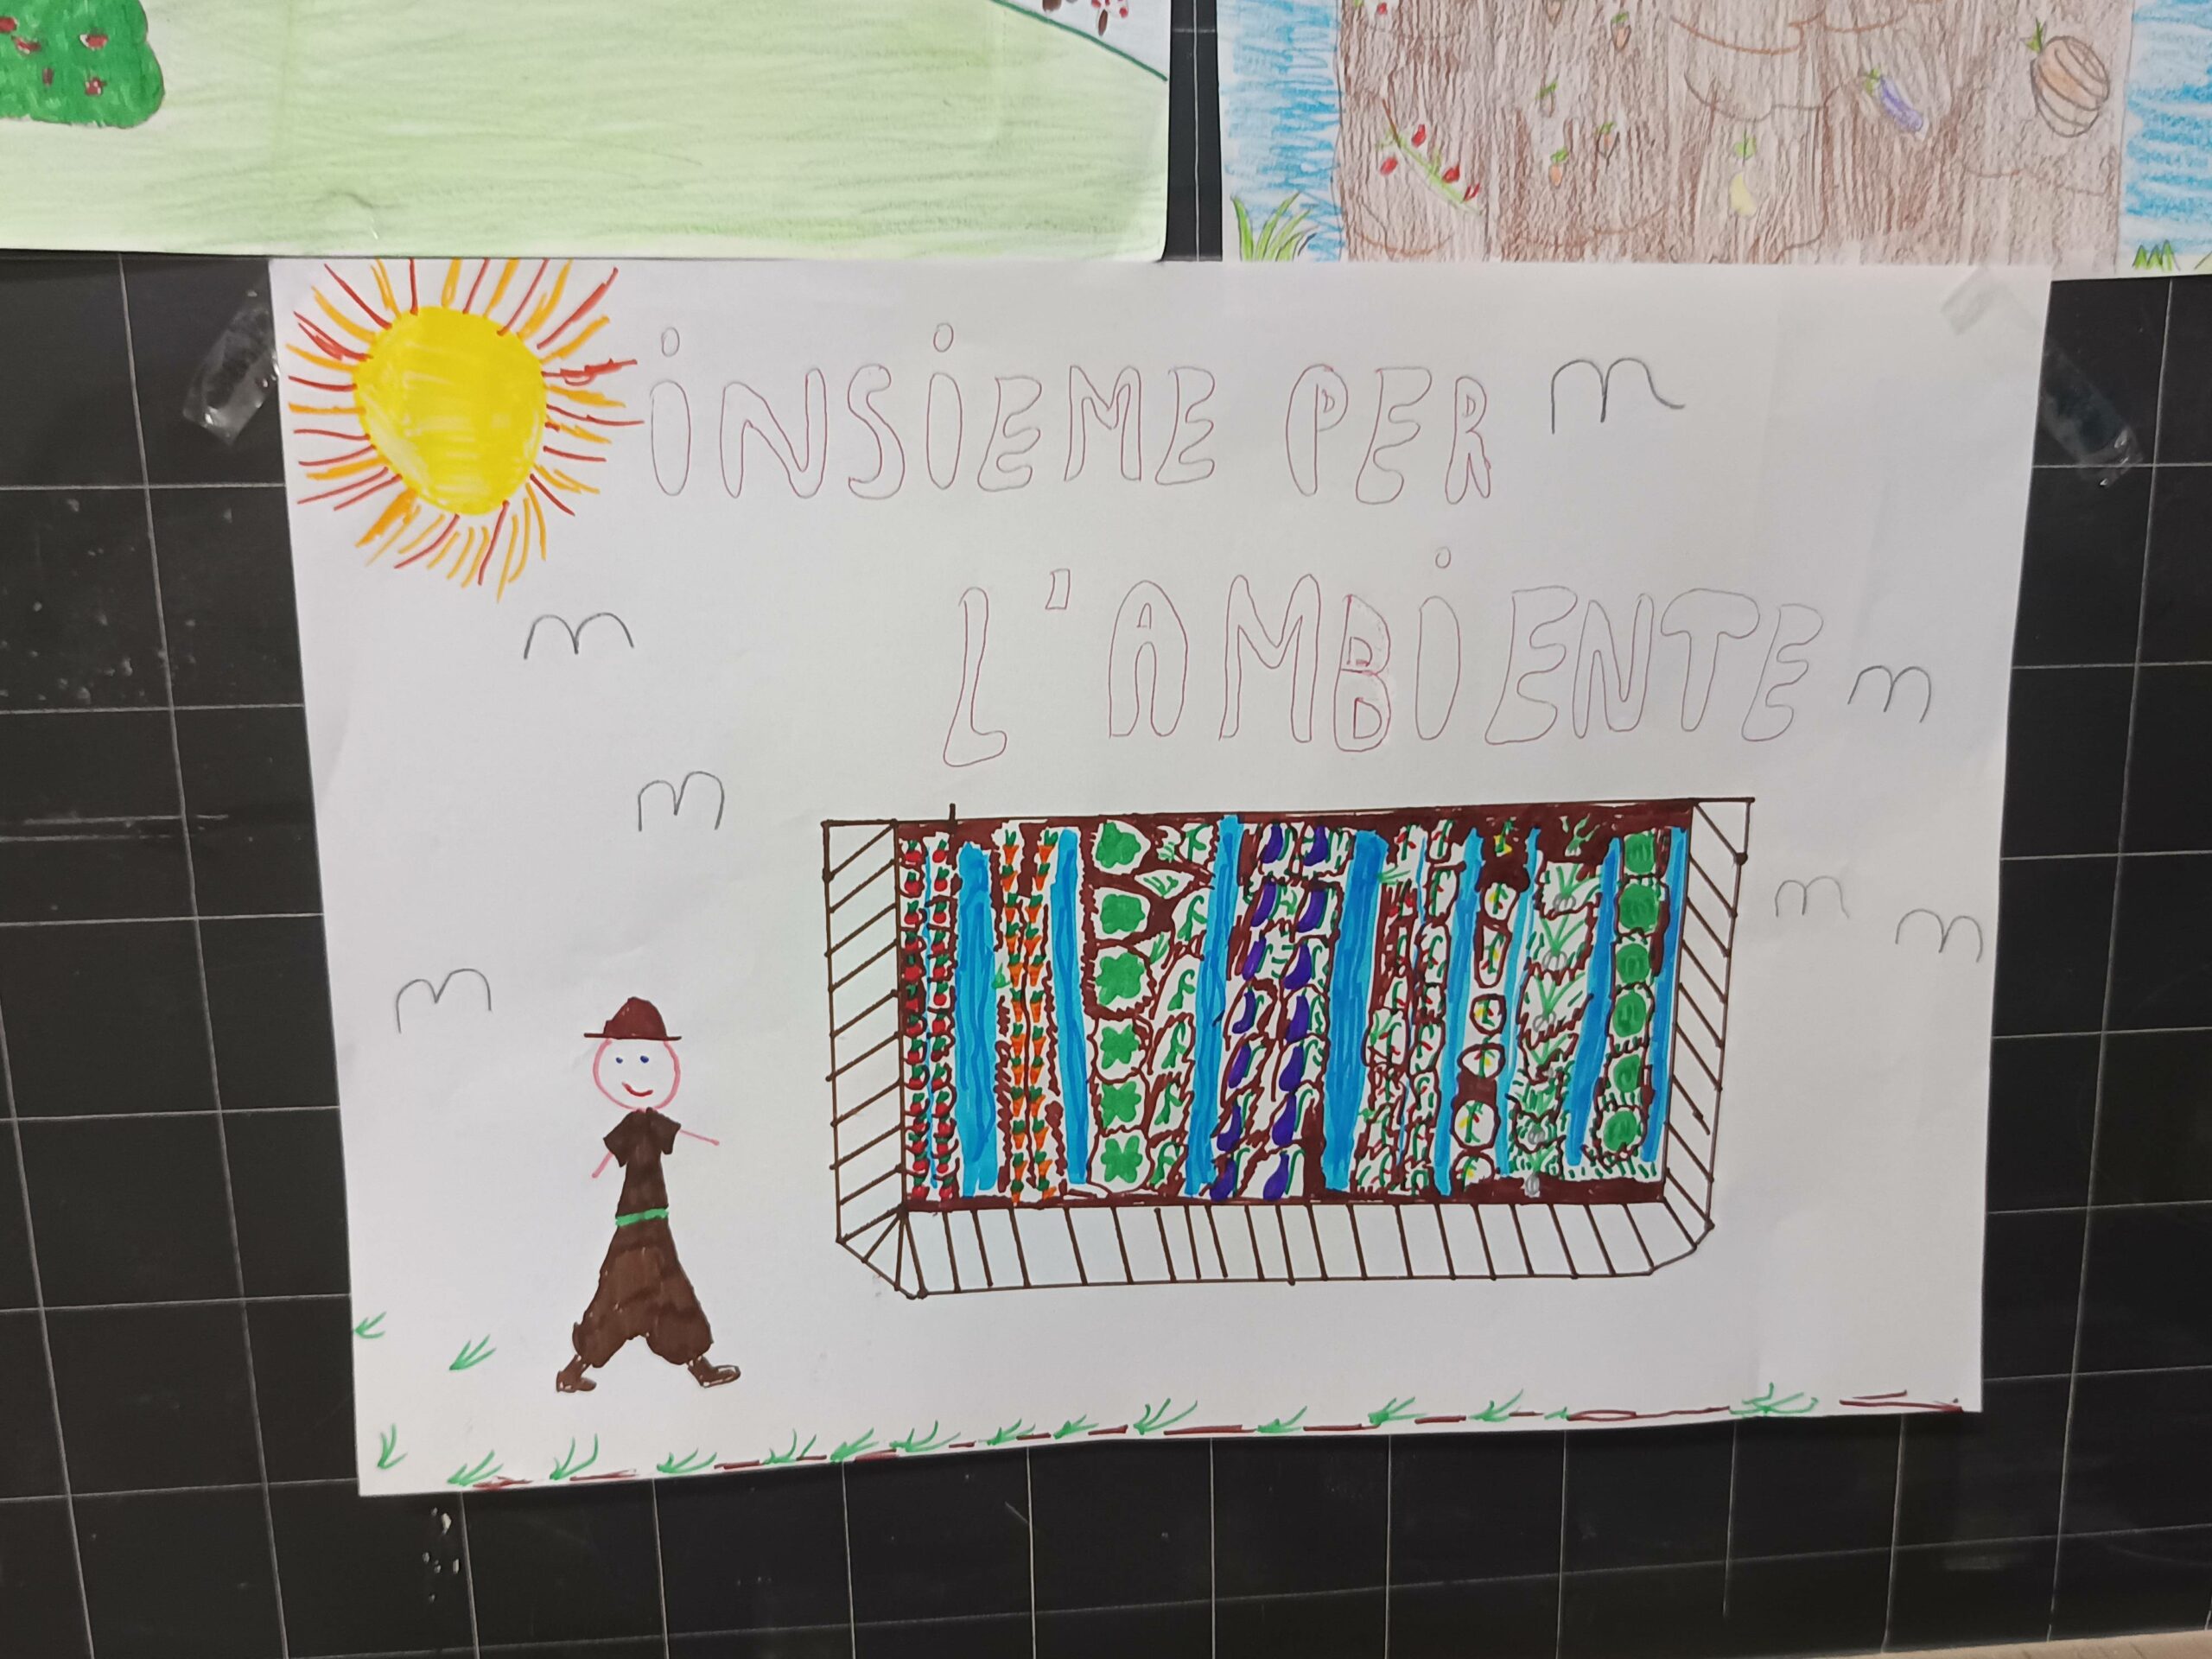 iNSiEME PER
L'AMBiENTE